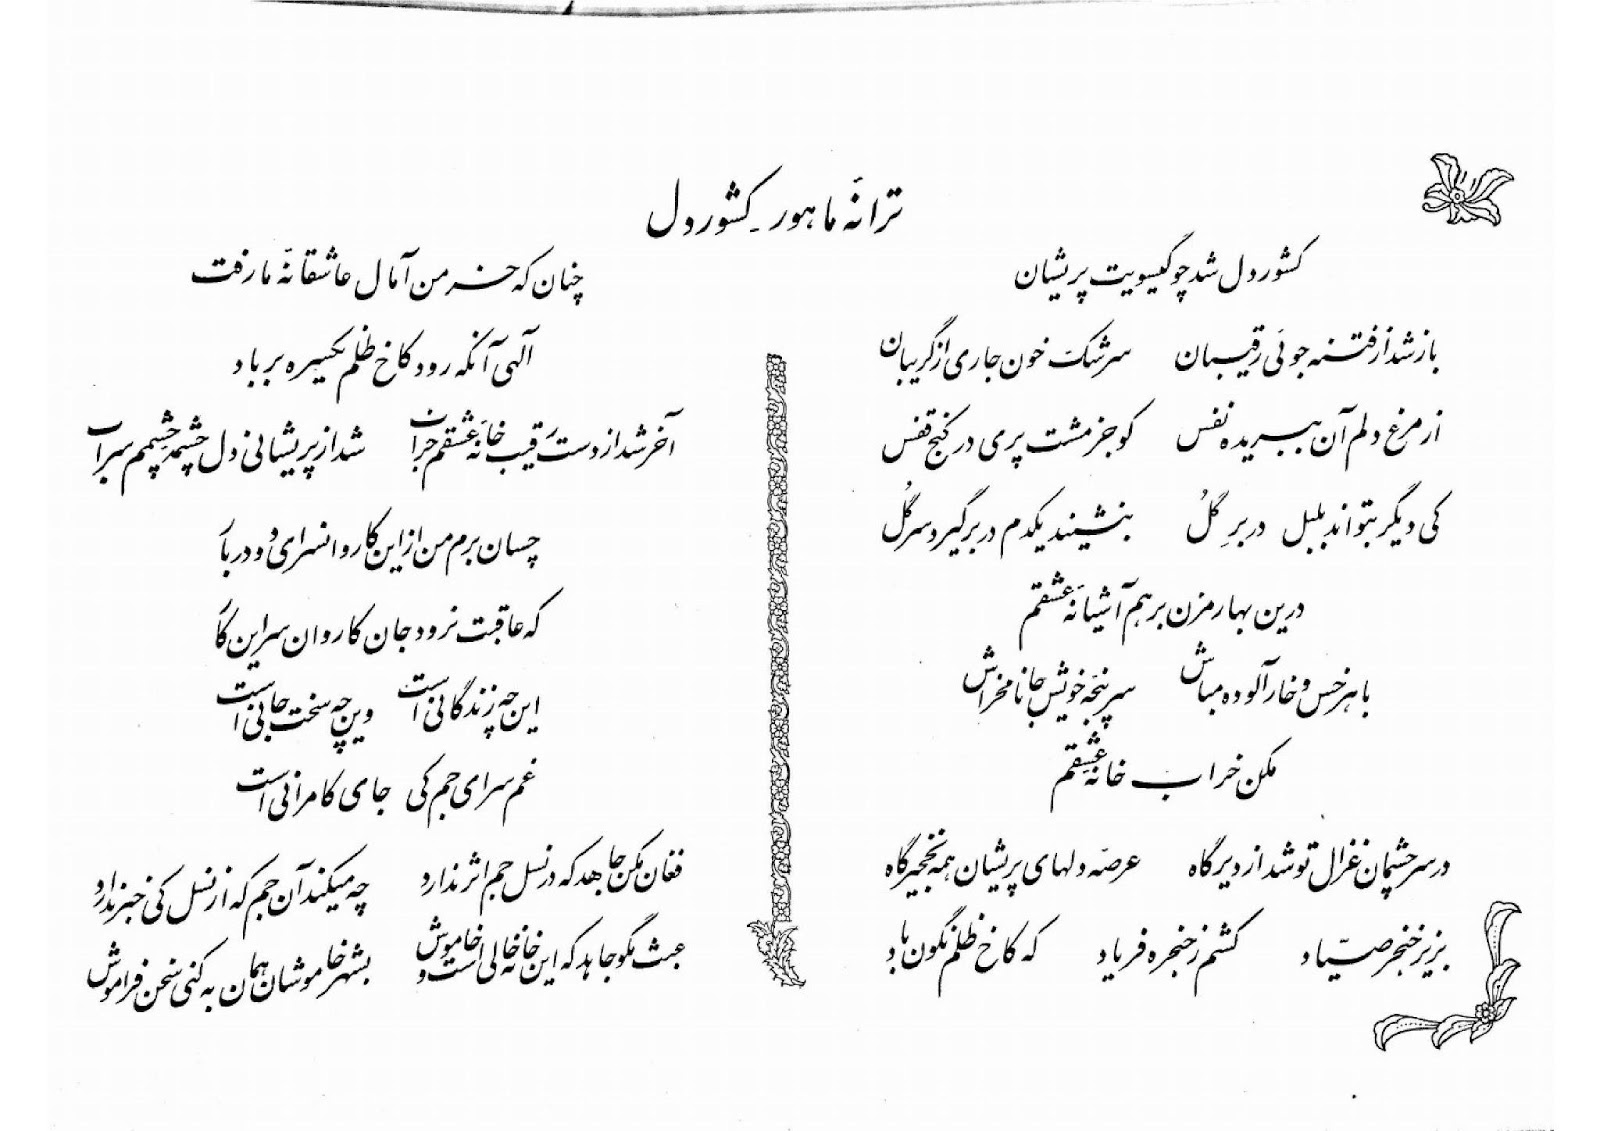 ترانهٔ ماهور - کشور دل
کشور دل شد چو گیسویت پریشان
باز شد از فتنه جوئی رقیبان سرشک خون جاری از گریبان
از مرغ دلم آن ببریده نفس کو جز مشت پری در کنج قفس
کی دیگر بتواند بلبل در برِ گُل بنشیند یکدم در بر گیرد سر گُل
درین بهار مزن برهم آشیانهٔ عشقم
با هر خس و خار آلوده مباش سر پنجهٔ خویش جانا مخراش
مکن خراب خانهٔ عشقم
در سر چشمان غزال تو شد از دیر گاه عرصهٔ دلهای پریشان همه نخجیرگاه
بزیر خنجر صیّاد کشم ز حنجره فریاد که کاخ ظلم نگون باد
چنان که خرمن آمال عاشقانهٔ ما رفت
الهی آنکه رود کاخ ظلم یکسره بر باد
آخر شد از دست رقیب خانهٔ عشقم خراب شد از پریشانی دل چشمهٔ چشمم سراب
چسان برم من از این کاروانسرای دو در بار
که عاقبت نرود جان کاروان سر این کار
این چه زندگانی است وین چه سخت جانی است
غم سرای جم کی جای کامرانی است
فغان مکن جاهد که در نسل جم اثر ندارد چه میکند آن جم که از نسل کی خبر ندارد
عبث مگو جاهد که این خانه خالی است و خاموش بشهر خاموشان همان به کنی سخن فراموش